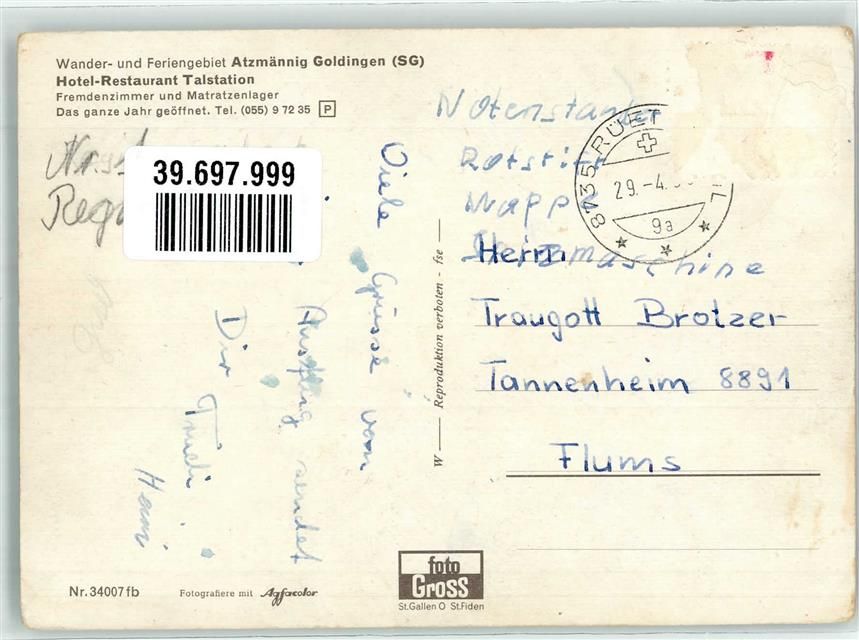 Wander- und Feriengebiet Atzmännig Goldingen (SG)
Hotel-Restaurant Talstation
Fremdenzimmer und Matratzenlager
Das ganze Jahr geöffnet. Tel. (055) 9 72 35 P
39.697.999
Viele Grüsse vom
Ausflug sendet
Dir Trudi.
W — Reproduktion verboten - fse —
Notenständer
Rotstift
Mappe
8735 RÜET
29.-4.
9a
Herrn
Traugott Brotzer
Tannenheim 8891
Flums
Nr. 34007fb
Fotografiere mit Agfacolor
foto
Gross
St.Gallen O St.Fiden